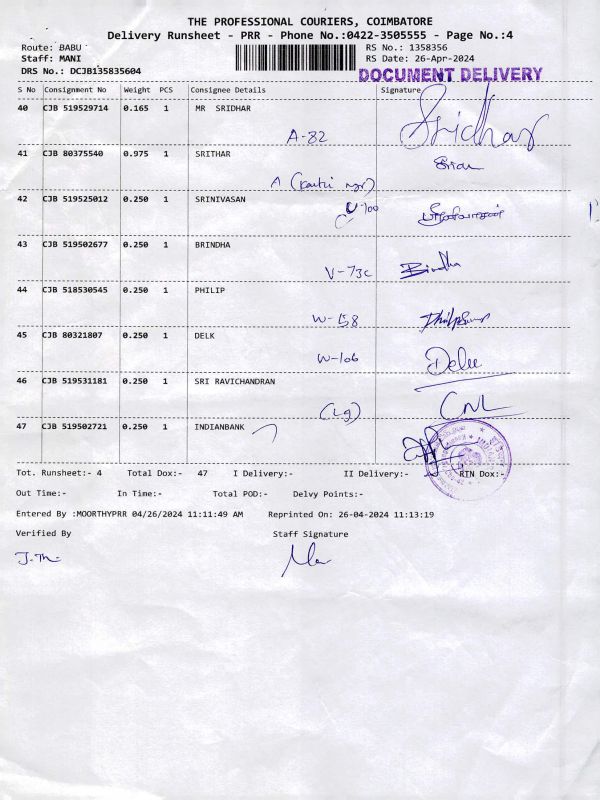 THE PROFESSIONAL COURIERS, COIMBATORE
Delivery Runsheet - PRR - Phone No.:0422-3505555 - Page No.:4
Route: BABU
RS No.: 1358356
Staff: MANI
RS Date: 26-Apr-2024
DRS No.: DCJB135835604
DOCUMENT DELIVERY
S No Consignment No Weight PCS Consignee Details Signature
40 CJB 519529714 0.165 1 MR SRIDHAR
A-82 Sridhar
41 CJB 80375540 0.975 1 SRITHAR
A
42 CJB 519525012 0.250 1 SRINIVASAN
U-100
43 CJB 519502677 0.250 1 BRINDHA
V-73c Brindha
44 CJB 518530545 0.250 1 PHILIP
W-58
45 CJB 80321807 0.250 1 DELK
W-106
46 CJB 519531181 0.250 1 SRI RAVICHANDRAN
(Lg)
47 CJB 519502721 0.250 1 INDIANBANK
Tot. Runsheet:- 4 Total Dox:- 47 I Delivery:- II Delivery:- RTN Dox:-
Out Time:- In Time:- Total POD:- Delvy Points:-
Entered By :MOORTHYPRR 04/26/2024 11:11:49 AM Reprinted On: 26-04-2024 11:13:19
Verified By Staff Signature